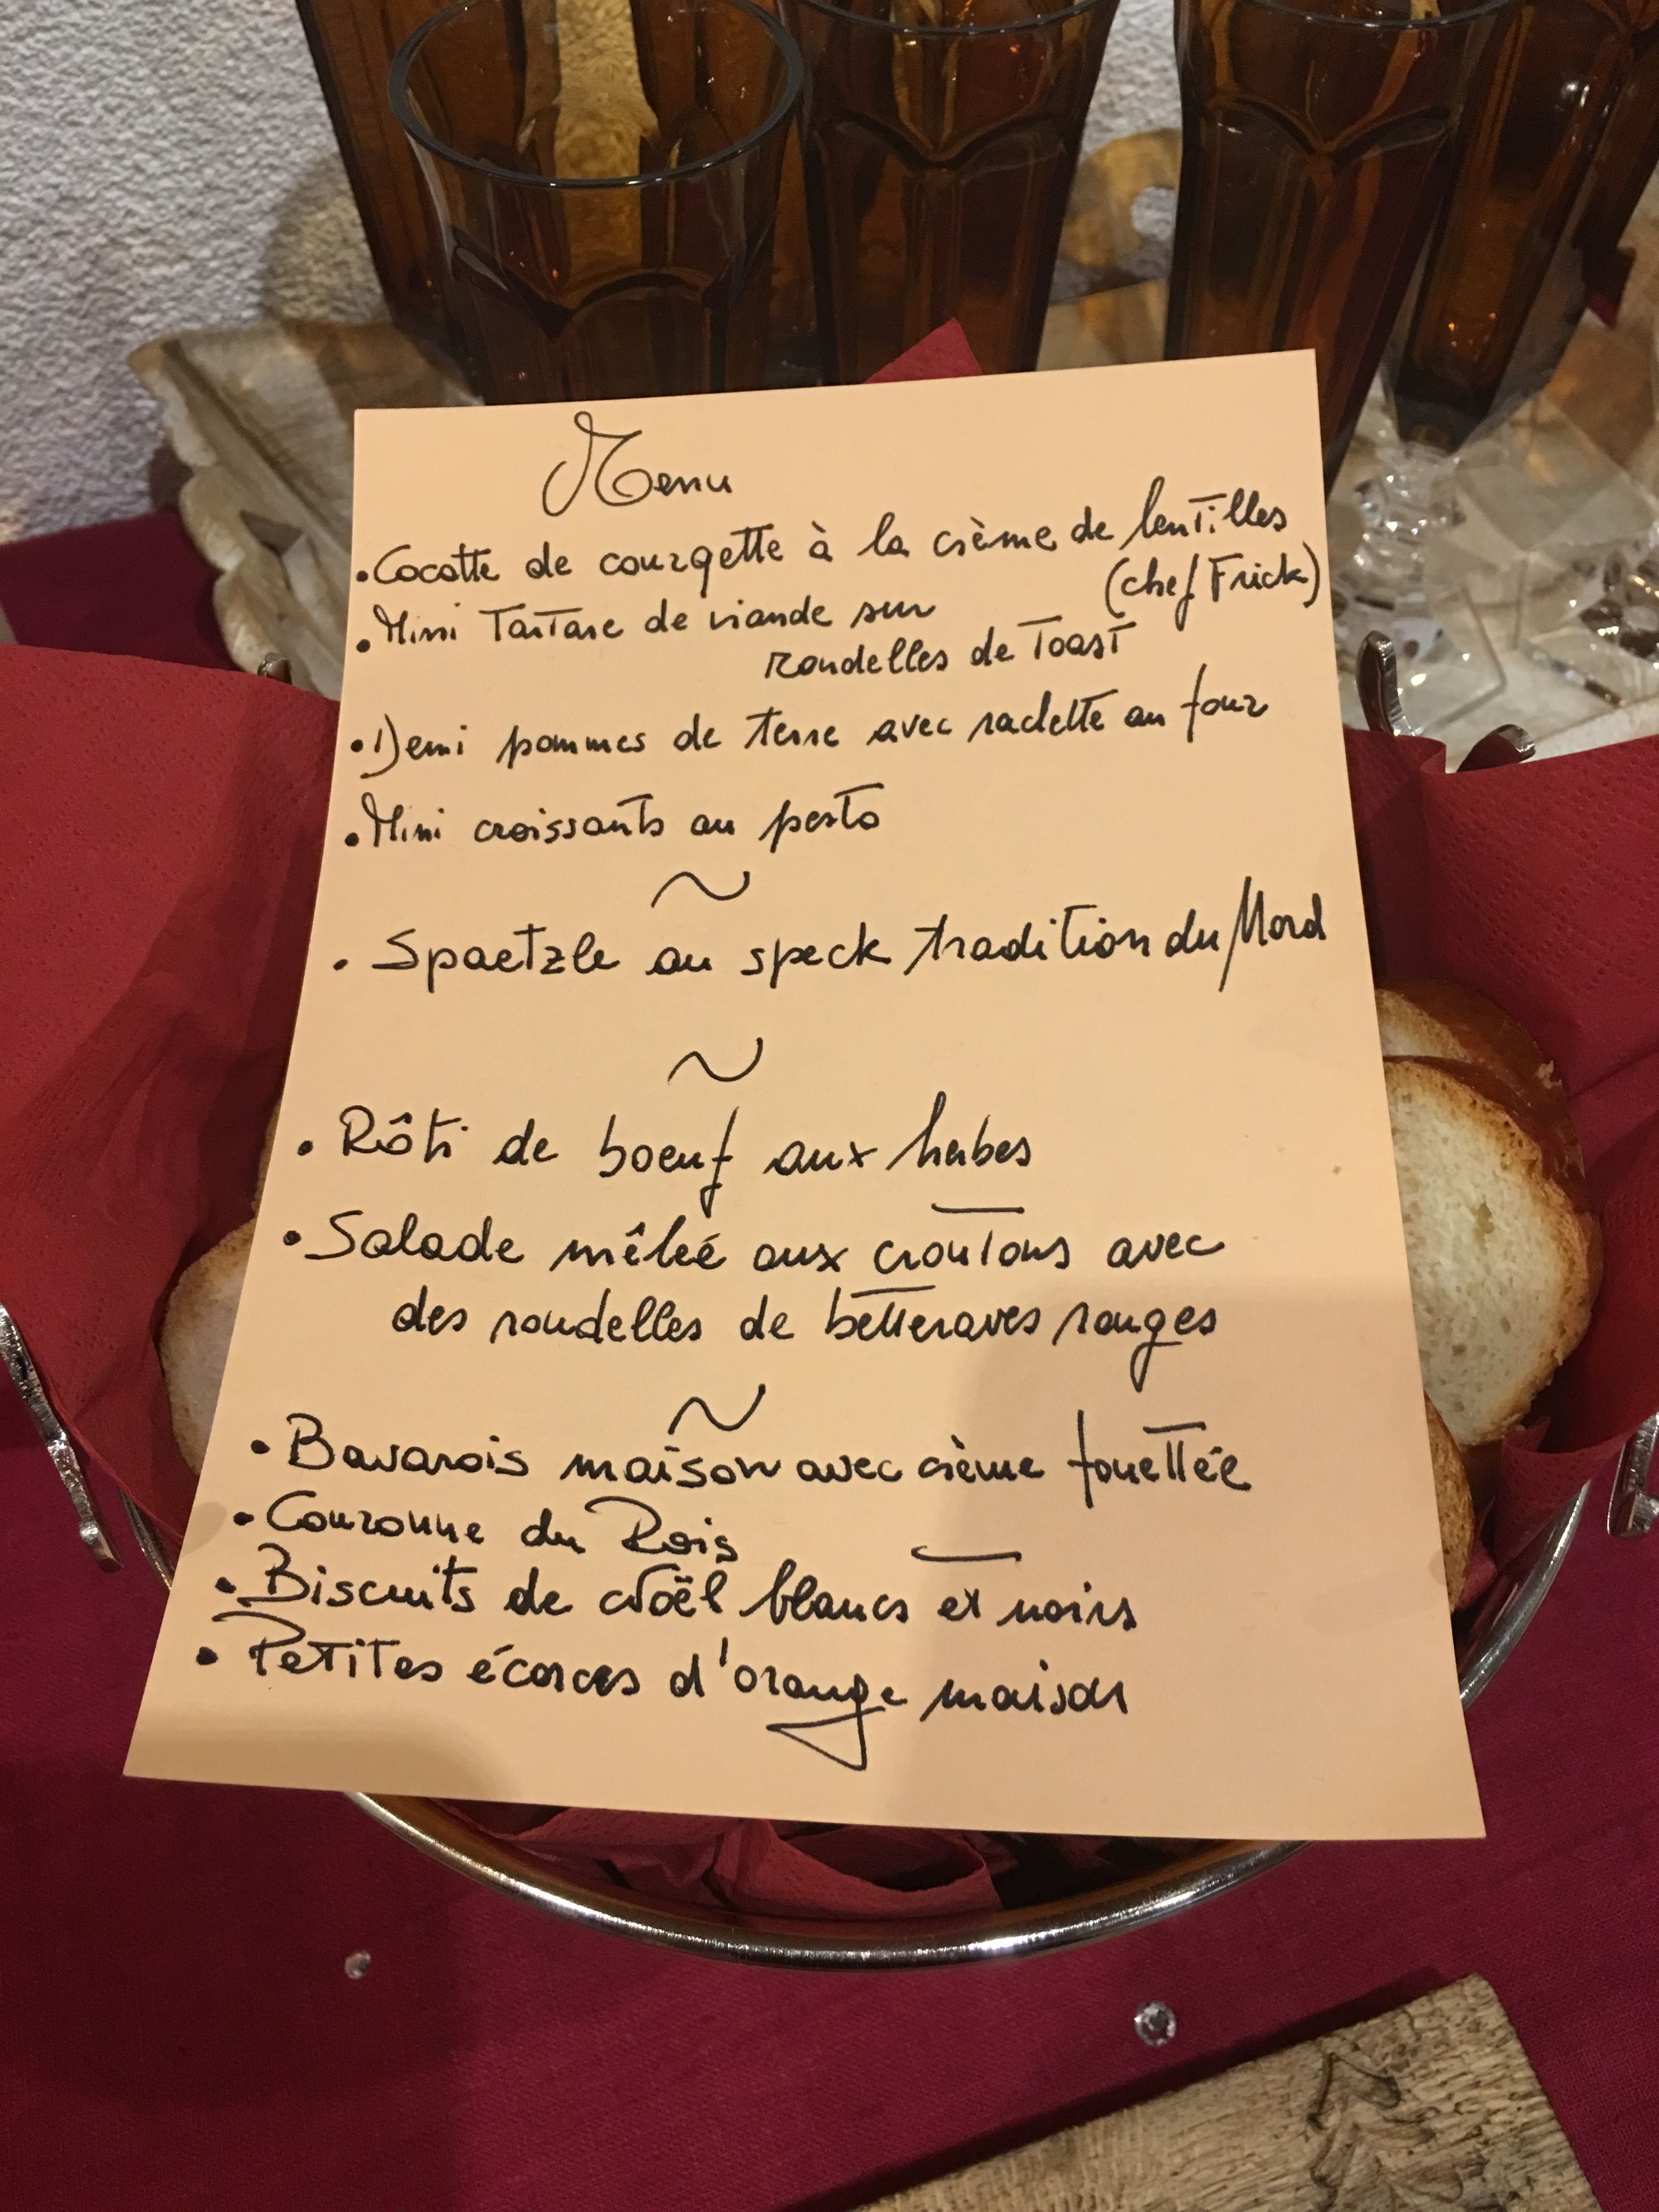 Menu
• Cocotte de courgette à la crème de lentilles
(chef Frick)
• Mini Tartare de viande sur
rondelles de Toast
• Demi pommes de terre avec raclette au four
• Mini croissants au pesto
~
• Spaetzle au speck tradition du Nord
~
• Rôti de boeuf aux herbes
• Salade mêleé aux croutons avec
des rondelles de betteraves rouges
~
• Bavarois maison avec crème fouettée
• Couronne du Rois
• Biscuits de Noël blancs et noirs
• Petites écorces d'orange maison